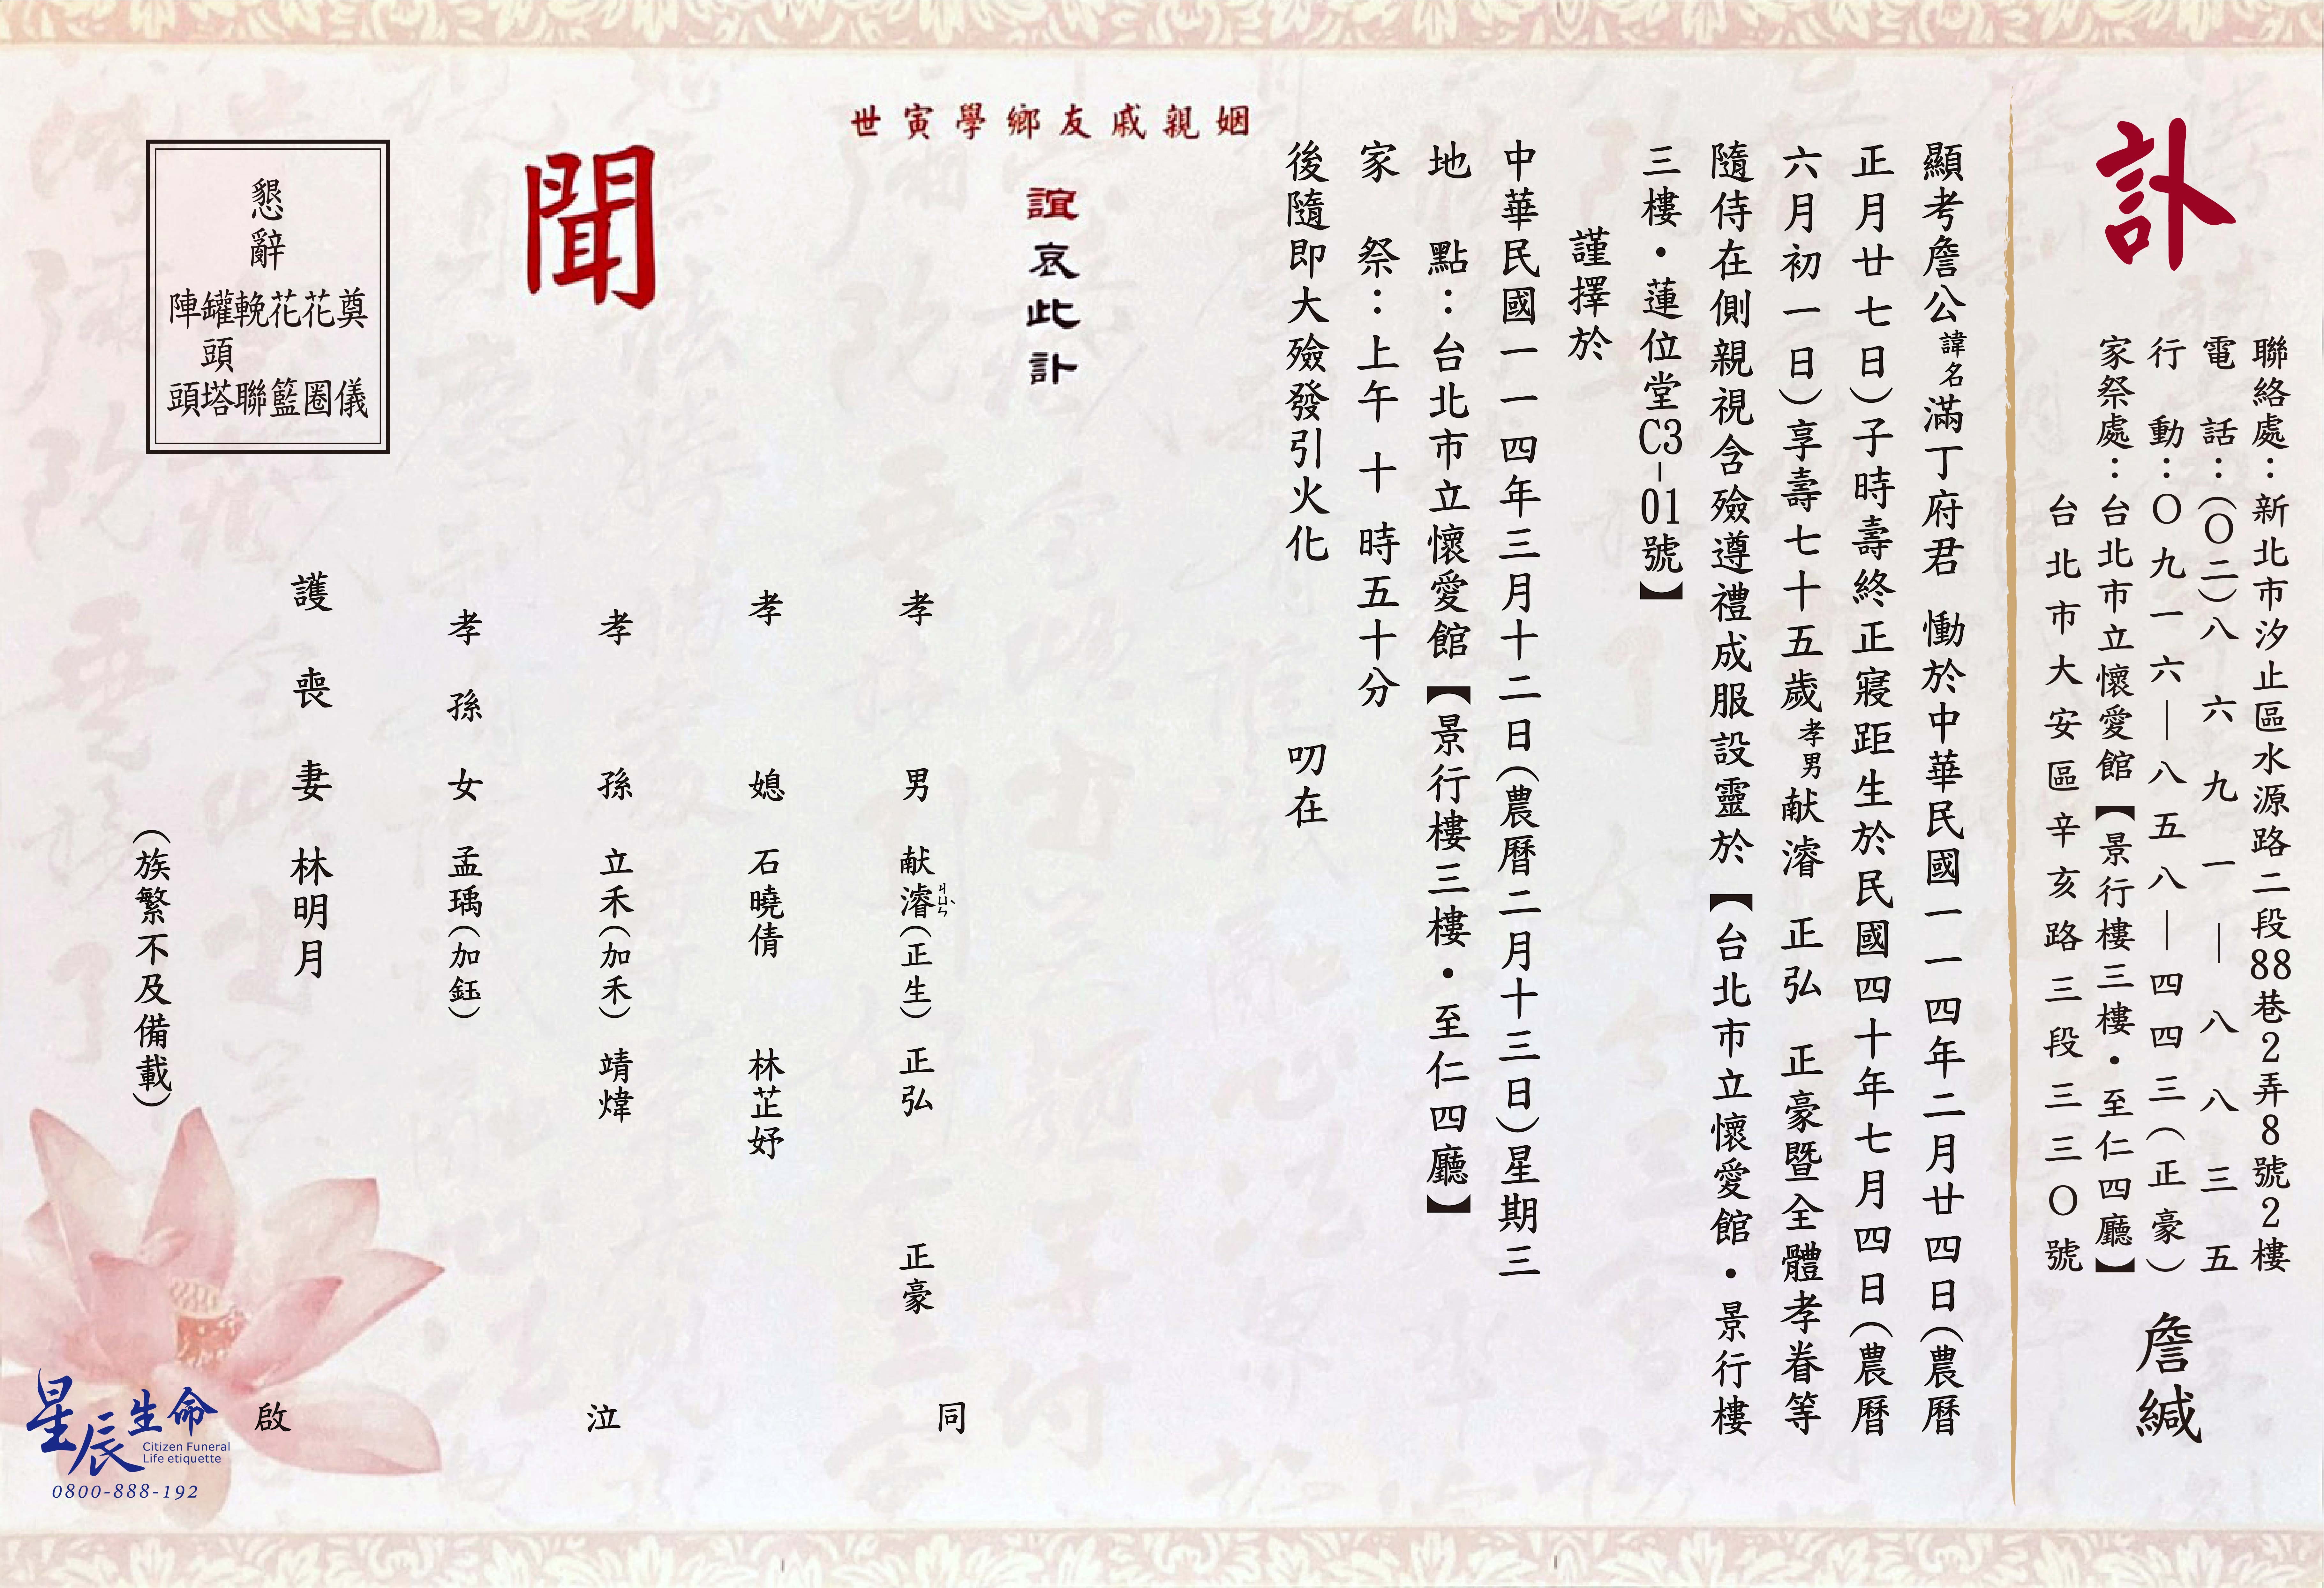 訃
聯絡處：新北市汐止區水源路二段88巷2弄8號2樓
電　話：(〇二)八六九一—八八三五
行　動：〇九一六—八五八—四四三(正豪)
家祭處：台北市立懷愛館【景行樓三樓・至仁四廳】
台北市大安區辛亥路三段三三〇號
詹緘
顯考詹公諱名滿丁府君　慟於中華民國一一四年二月廿四日(農曆
正月廿七日)子時壽終正寢距生於民國四十年七月四日(農曆
六月初一日)享壽七十五歲孝男献濬　正弘　正豪暨全體孝眷等
隨侍在側親視含殮遵禮成服設靈於【台北市立懷愛館・景行樓
三樓・蓮位堂C3-01號】
謹擇於
中華民國一一四年三月十二日(農曆二月十三日)星期三
地　點：台北市立懷愛館【景行樓三樓・至仁四廳】
家　祭：上午十時五十分
後隨即大殮發引火化　叨在
姻親戚友鄉學寅世
誼哀此訃
聞
孝　男　献濬(正生)　正弘　正豪
ㄐㄩㄣˋ
孝　媳　石曉倩　林芷妤
孝　孫　立禾(加禾)　靖煒
孝孫女　孟瑀(加鈺)
護喪妻　林明月
(族繁不及備載)
同
泣
啟
懇辭
奠儀
花圈
花籃
輓聯
罐頭塔
陣頭
星辰生命
Citizen Funeral
Life etiquette
0800-888-192